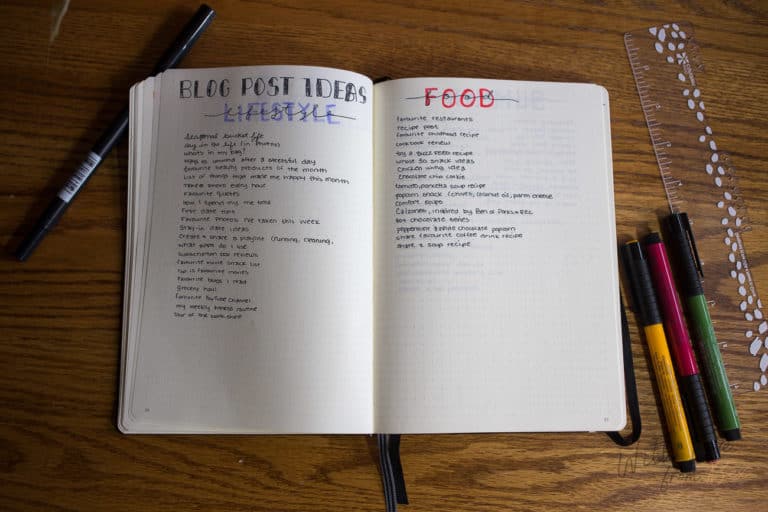 BLOG POST IDEAS
LIFESTYLE
Seasonal bucket list
day in the life (in photos)
what's in my bag?
ways to unwind after a stressful day
favourite beauty products of the month
list of things that made me happy this month
photo every hour
favourite quotes
how I spend my me time
First date tips
Favourite photos I've taken this week
Stay-in date ideas
create & share a playlist (running, cleaning,
what apps do I use
subscription box reviews
favourite movie snack list
top 15 favourite movies
favourite blogs I read
grocery haul
favourite YouTube channel
my weekly fitness routine
tour of the book shelf
FOOD
favourite restaurants
recipe post
favourite childhood recipe
cookbook review
try a Buzz Feed recipe
whole 30 snack ideas
chicken wing idea
chocolate chip cookie
tomato, pancetta soup recipe
popcorn snack (chives, coconut oil, parm cheese
comfort soups
Calzones, inspired by Ben of Parks & Rec
hot chocolate
peppermint & white chocolate popcorn
share favourite coffee drink recipe
share a soup recipe